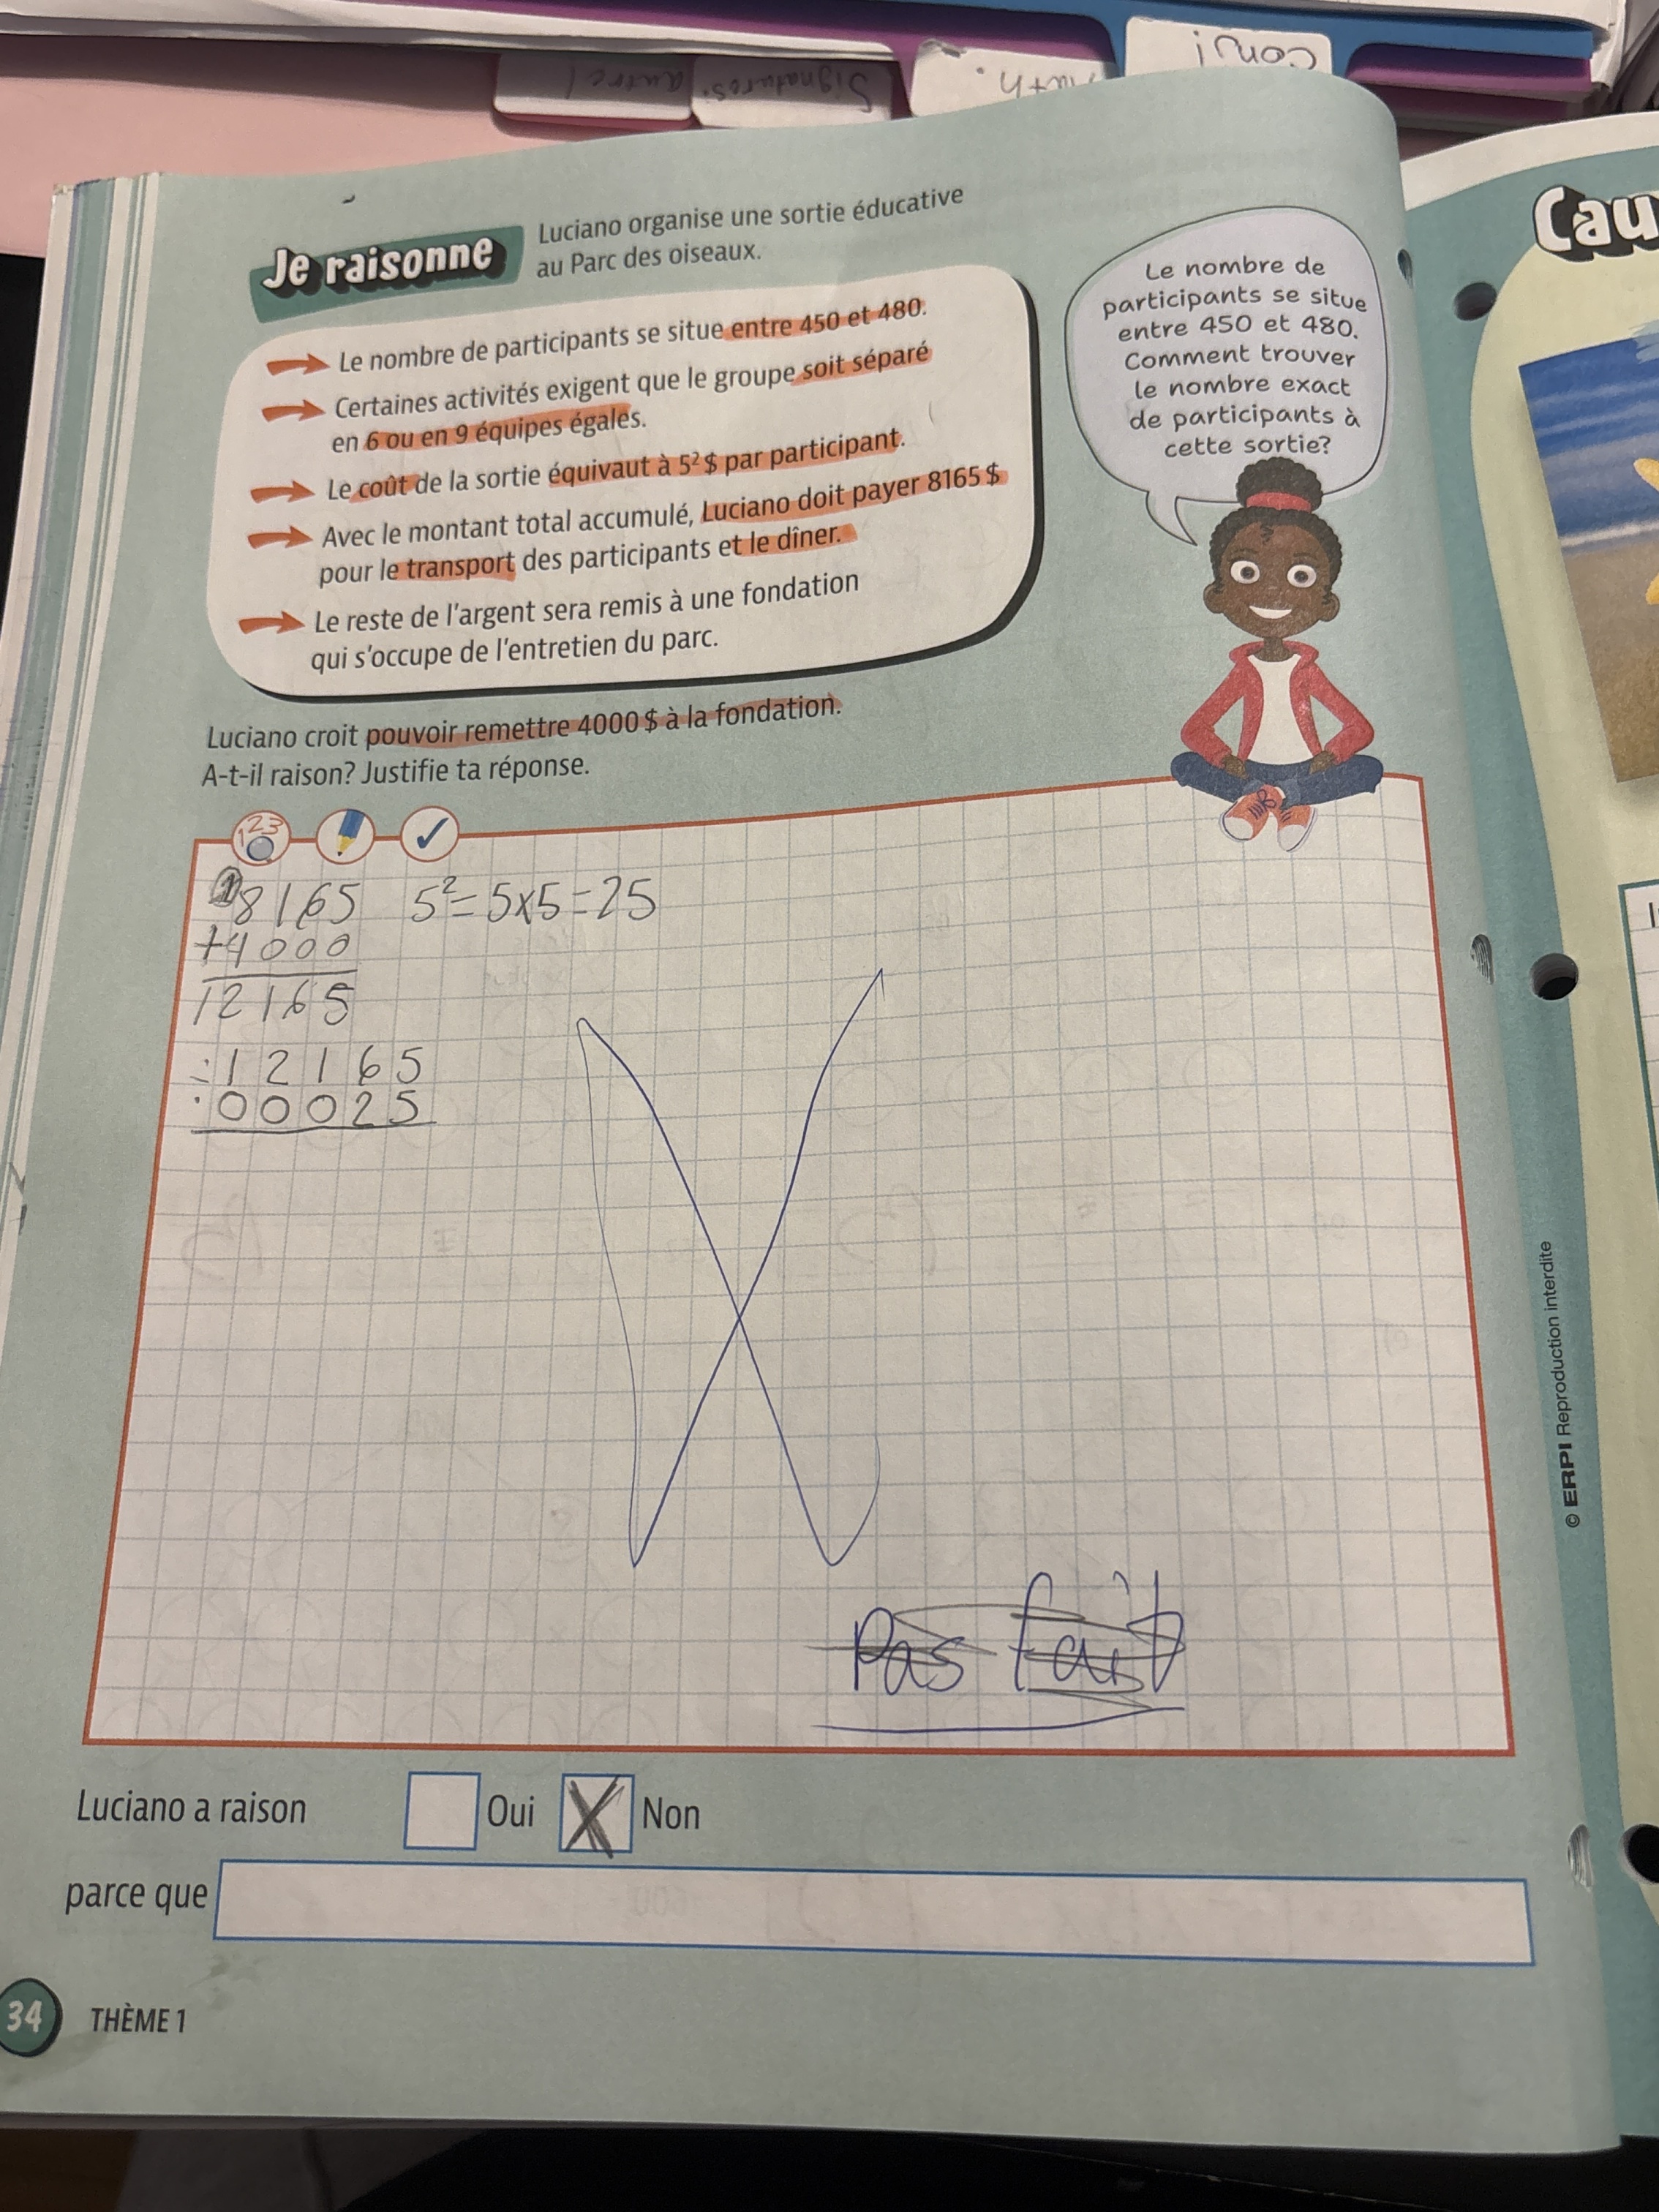 Conj
Math.
Signatures.
autre!
Je raisonne
Luciano organise une sortie éducative
au Parc des oiseaux.
Le nombre de participants se situe entre 450 et 480.
Certaines activités exigent que le groupe soit séparé
en 6 ou en 9 équipes égales.
Le coût de la sortie équivaut à 5² $ par participant.
Avec le montant total accumulé, Luciano doit payer 8165 $
pour le transport des participants et le dîner.
Le reste de l'argent sera remis à une fondation
qui s'occupe de l'entretien du parc.
Le nombre de
participants se situe
entre 450 et 480.
Comment trouver
le nombre exact
de participants à
cette sortie?
Luciano croit pouvoir remettre 4000 $ à la fondation.
A-t-il raison? Justifie ta réponse.
123
8165 5²=5x5=25
+4000
12165
12165
00025
Pas fait
Luciano a raison Oui X Non
parce que
34 THÈME 1
© ERPI Reproduction interdite
Cau